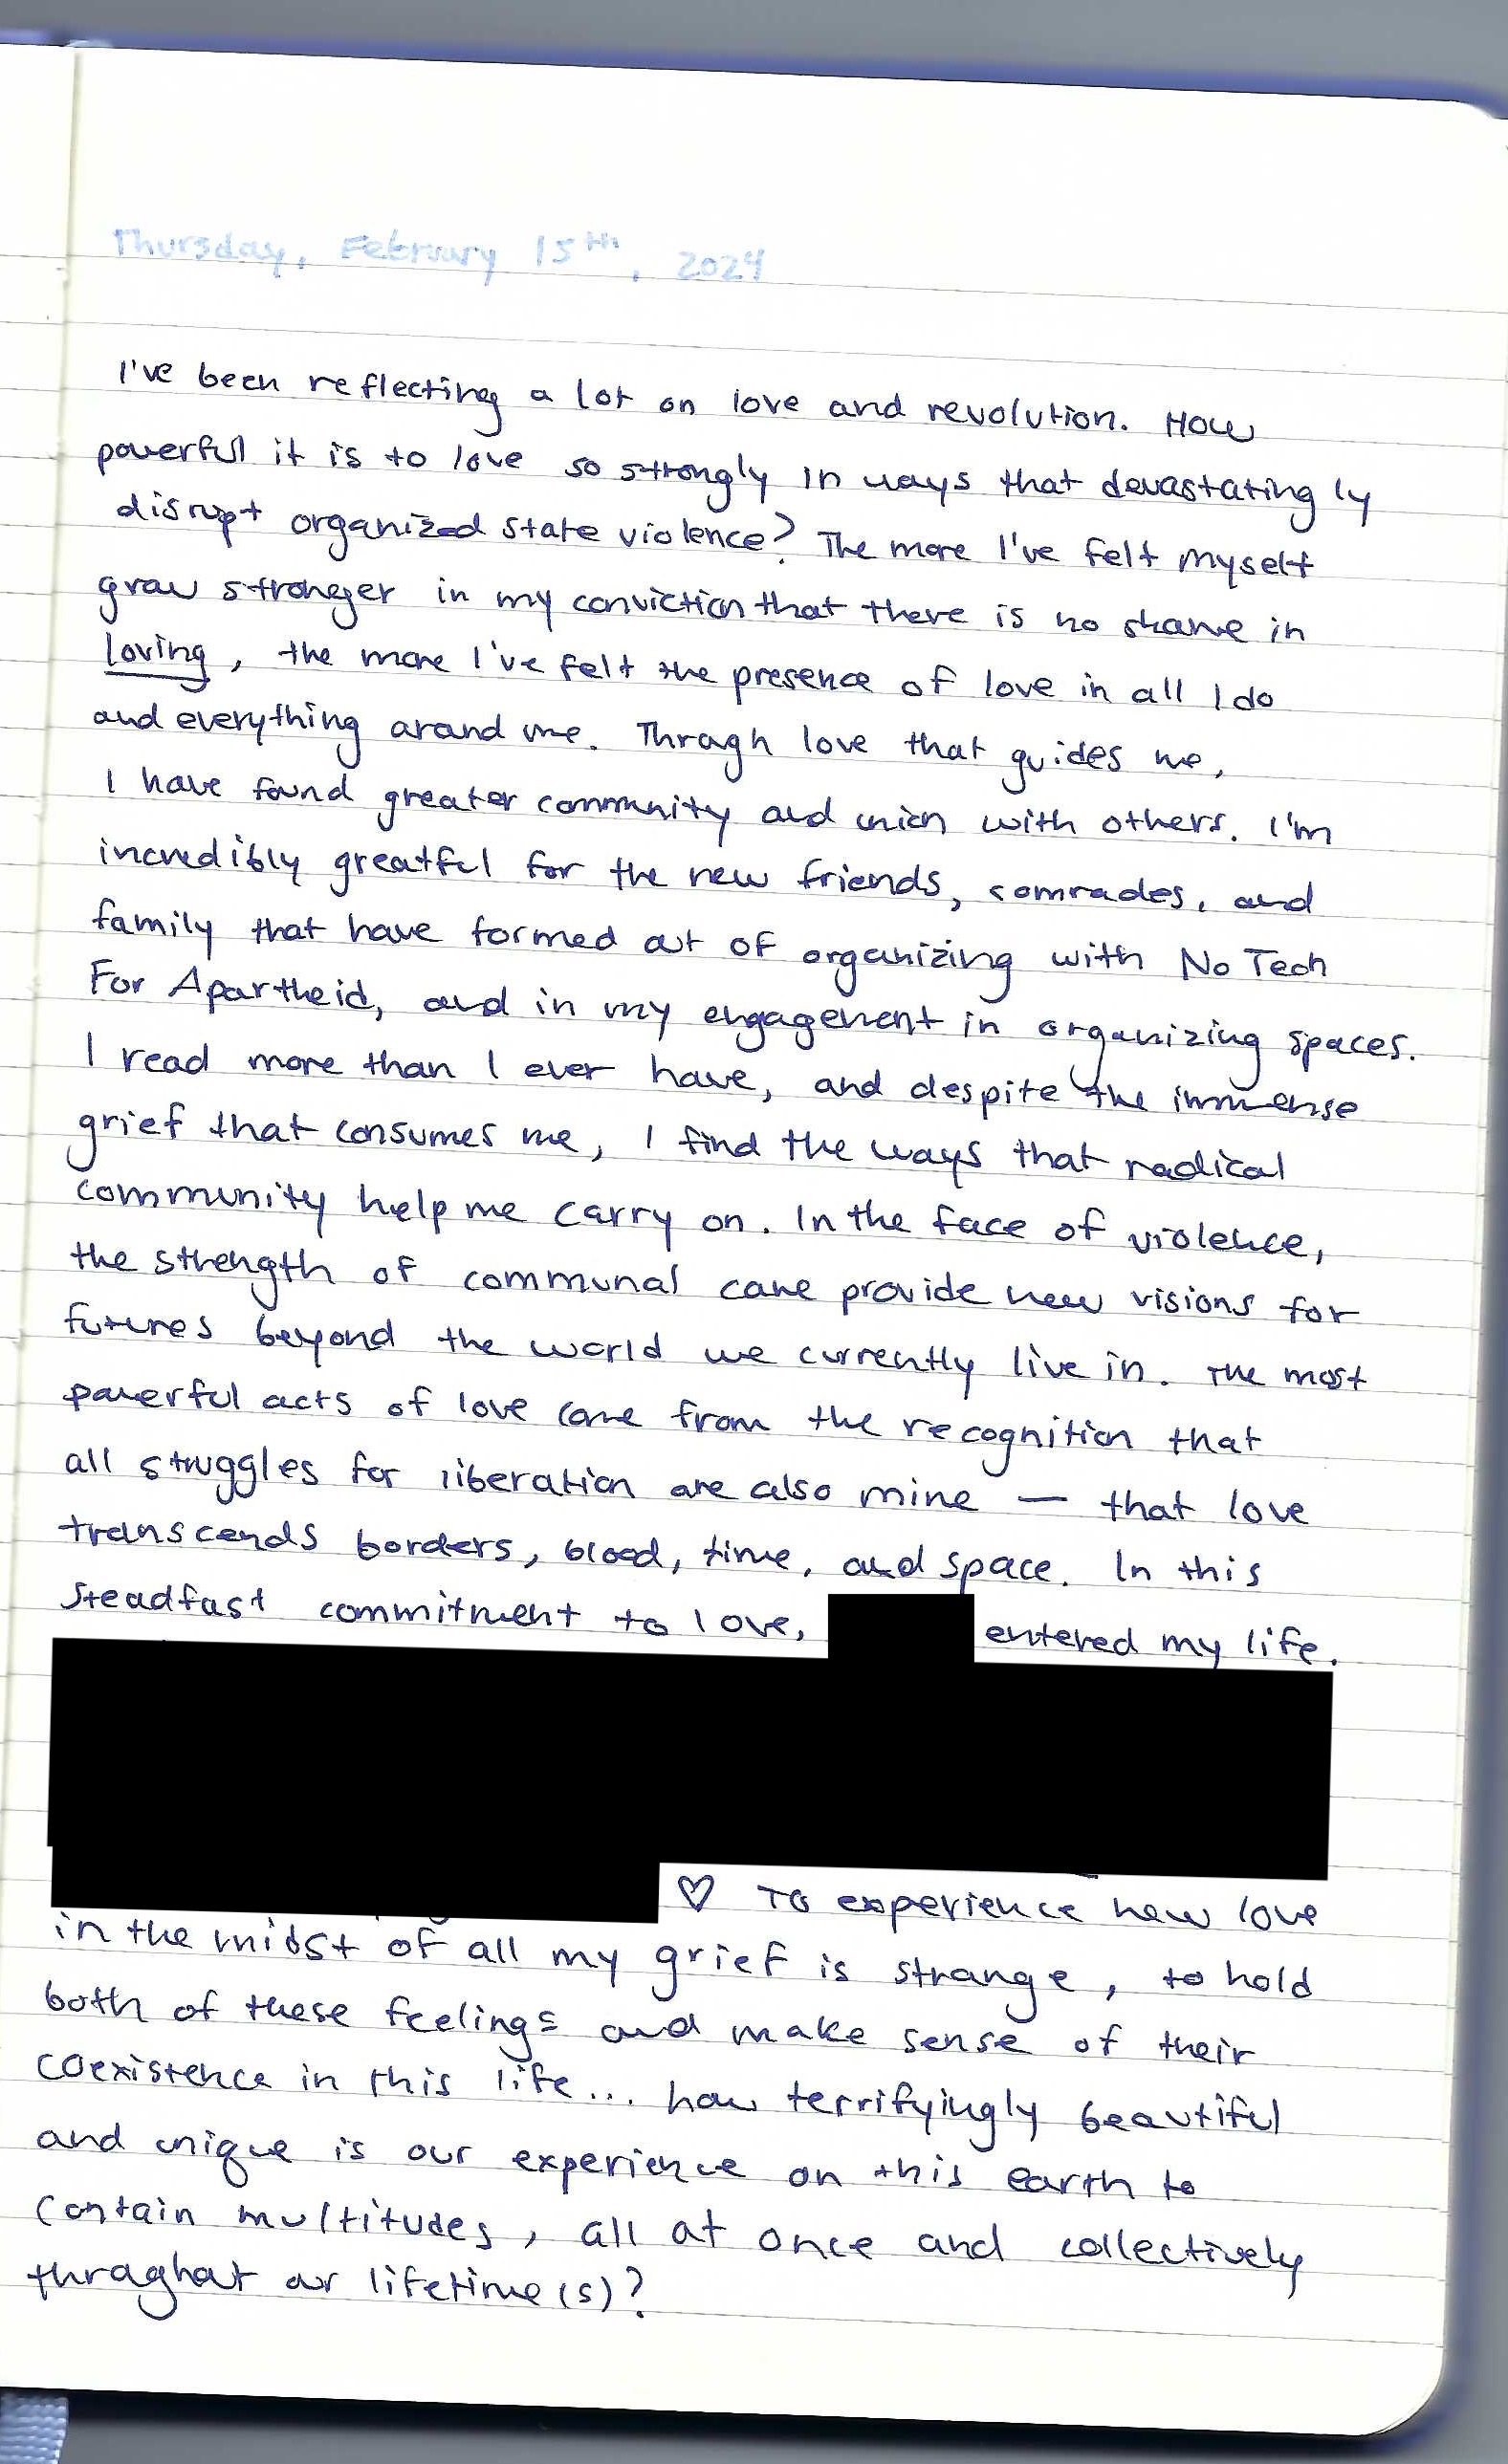 Thursday, February 15th, 2024
I've been reflecting a lot on love and revolution. How
powerful it is to love so strongly in ways that devastatingly
disrupt organized state violence? The more I've felt myself
grow stronger in my conviction that there is no shame in
loving, the more I've felt the presence of love in all I do
and everything around me. Through love that guides me,
I have found greater community and union with others. I'm
incredibly greatful for the new friends, comrades, and
family that have formed out of organizing with No Tech
For Apartheid, and in my engagement in organizing spaces.
I read more than I ever have, and despite the immense
grief that consumes me, I find the ways that radical
community help me carry on. In the face of violence,
the strength of communal care provide new visions for
futures beyond the world we currently live in. The most
powerful acts of love come from the recognition that
all struggles for liberation are also mine — that love
transcends borders, blood, time, and space. In this
steadfast commitment to love, entered my life.
♡ To experience new love
in the midst of all my grief is strange, to hold
both of these feelings and make sense of their
coexistence in this life... how terrifyingly beautiful
and unique is our experience on this earth to
contain multitudes, all at once and collectively
throughout our lifetime(s)?